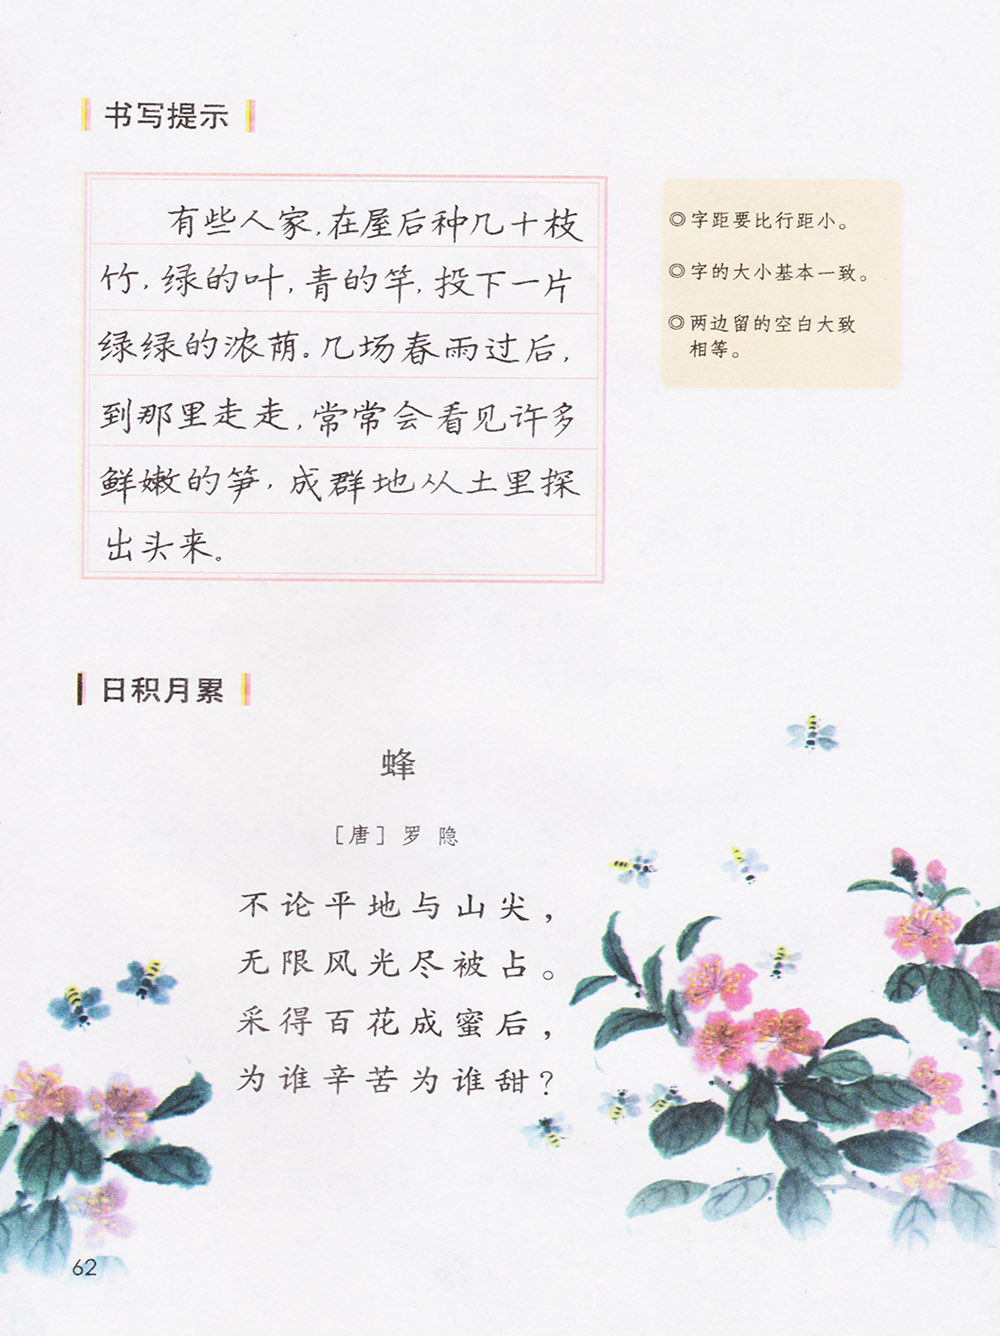 书写提示
有些人家,在屋后种几十枝
竹,绿的叶,青的竿,投下一片
绿绿的浓荫。几场春雨过后,
到那里走走,常常会看见许多
鲜嫩的笋,成群地从土里探
出头来。
◎字距要比行距小。
◎字的大小基本一致。
◎两边留的空白大致
相等。
日积月累
蜂
[唐] 罗 隐
不论平地与山尖，
无限风光尽被占。
采得百花成蜜后，
为谁辛苦为谁甜？
62